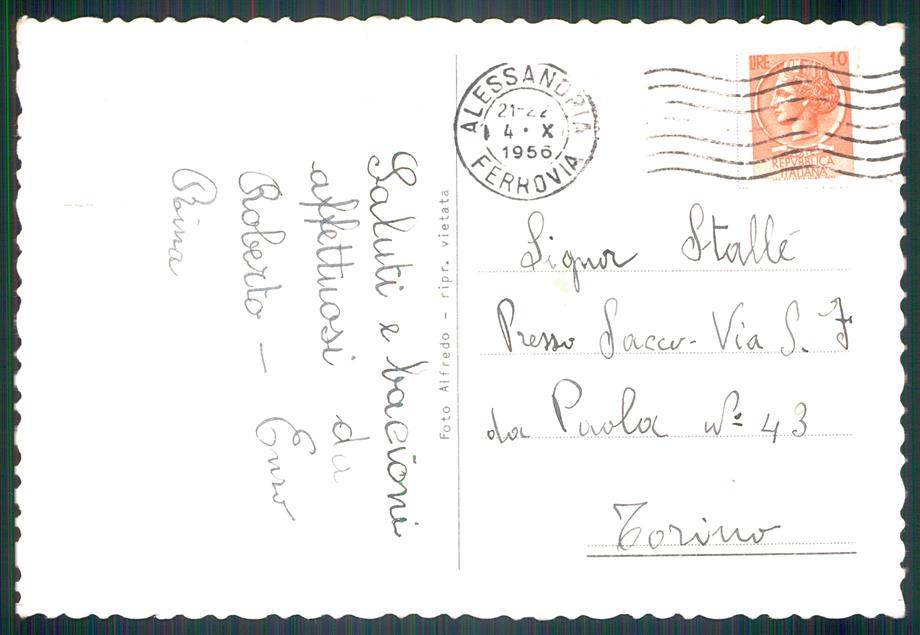 Saluti e bacioni
affettuosi da
Roberto – Enzo
Rina
Foto Alfredo - ripr. vietata
ALESSANDRIA
21-22
4 • X
1956
FERROVIA
LIRE 10
REPVBBLICA
ITALIANA
Signor Stallé
Presso Sacco - Via S. F
da Paola Nº 43
Torino